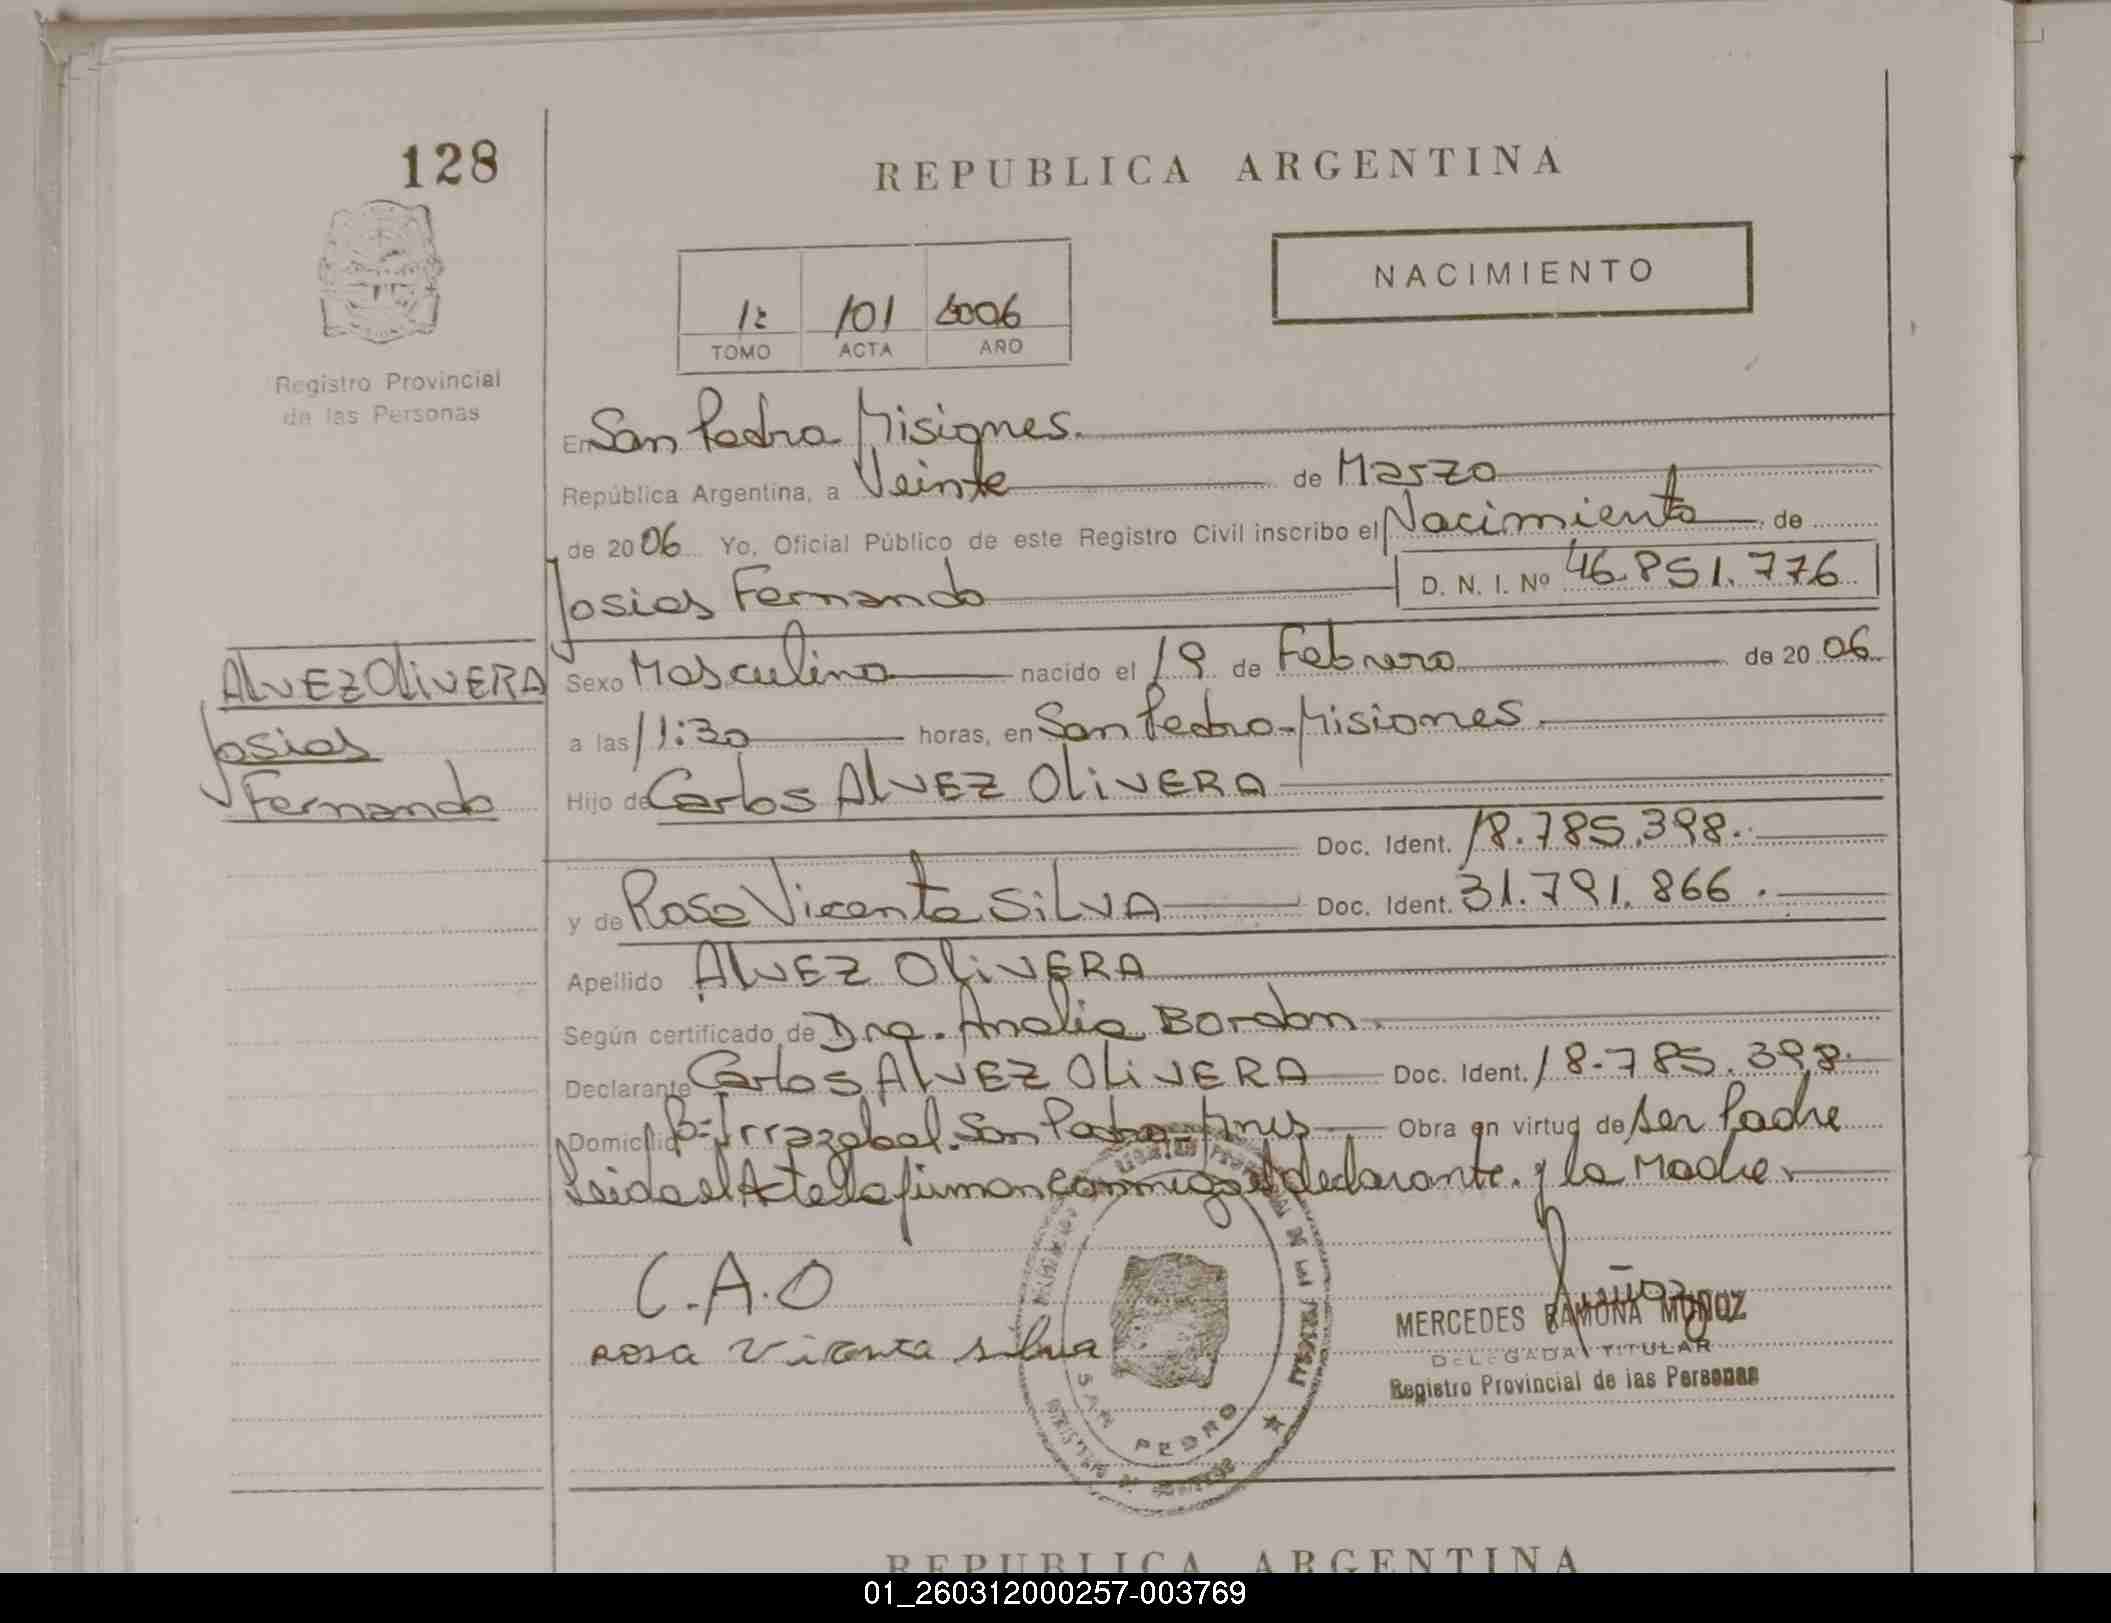 128
REPUBLICA ARGENTINA
NACIMIENTO
101
TOMO ACTA AÑO
Registro Provincial
de las Personas
En San Pedro Misiones.
República Argentina, a Veinte de Marzo
de 2006 Yo, Oficial Público de este Registro Civil inscribo el Nacimiento de
Josias Fernando D. N. I. Nº 46.851.776
ALVEZ OLIVERA
Josias
Fernando
Sexo Masculino nacido el 19 de Febrero de 2006
a las 11:30 horas, en San Pedro-Misiones.
Hijo de Carlos ALVEZ OLIVERA
Doc. Ident. 18.785.398.
y de Rosa Vicenta SILVA Doc. Ident. 31.791.866.
Apellido ALVEZ OLIVERA
Según certificado de Dra. Analia Bordon.
Declarante Carlos ALVEZ OLIVERA Doc. Ident. 18.785.398.
Domicilio Bº Irrazabal. San Pedro-Mnes Obra en virtud de ser Padre
Leida el Acta la firman conmigo el declarante. y la Madre.
C.A.O
rosa vicenta silva
MERCEDES RAMONA MUÑOZ
DELEGADA TITULAR
Registro Provincial de las Personas
SAN PEDRO
REPUBLICA ARGENTINA
01_260312000257-003769